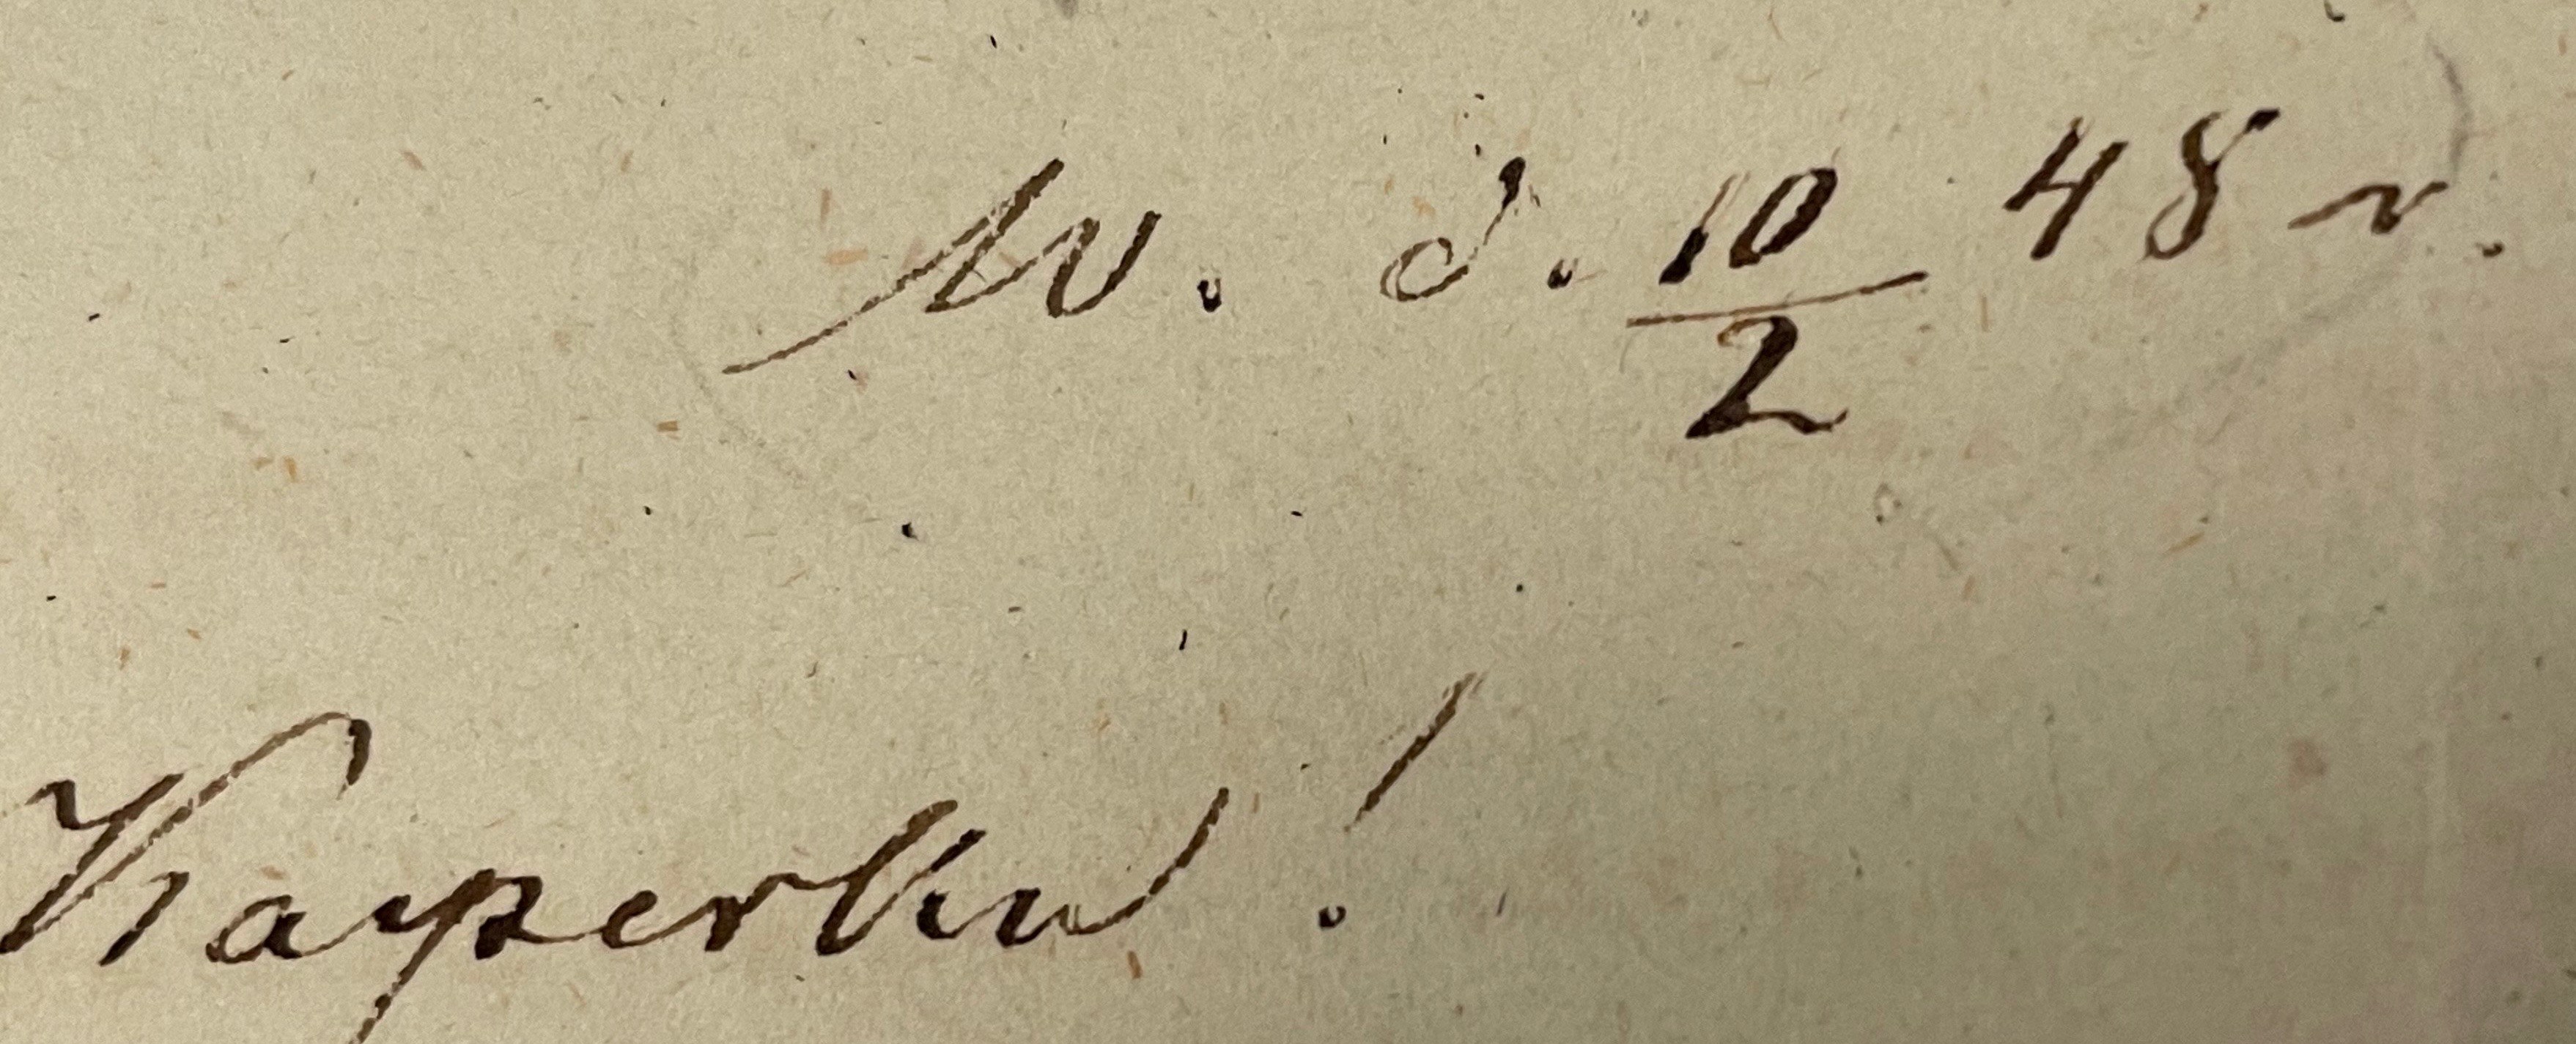 W. d. 10/2 48 r.
Kasperku!